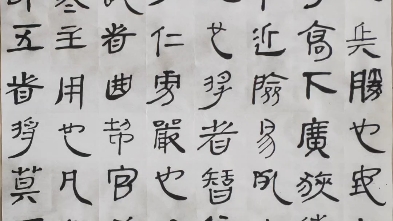 兵勝也地
高下廣狹
近險易死
也將者智
仁勇嚴也
者曲制官
主用也凡
五者將莫